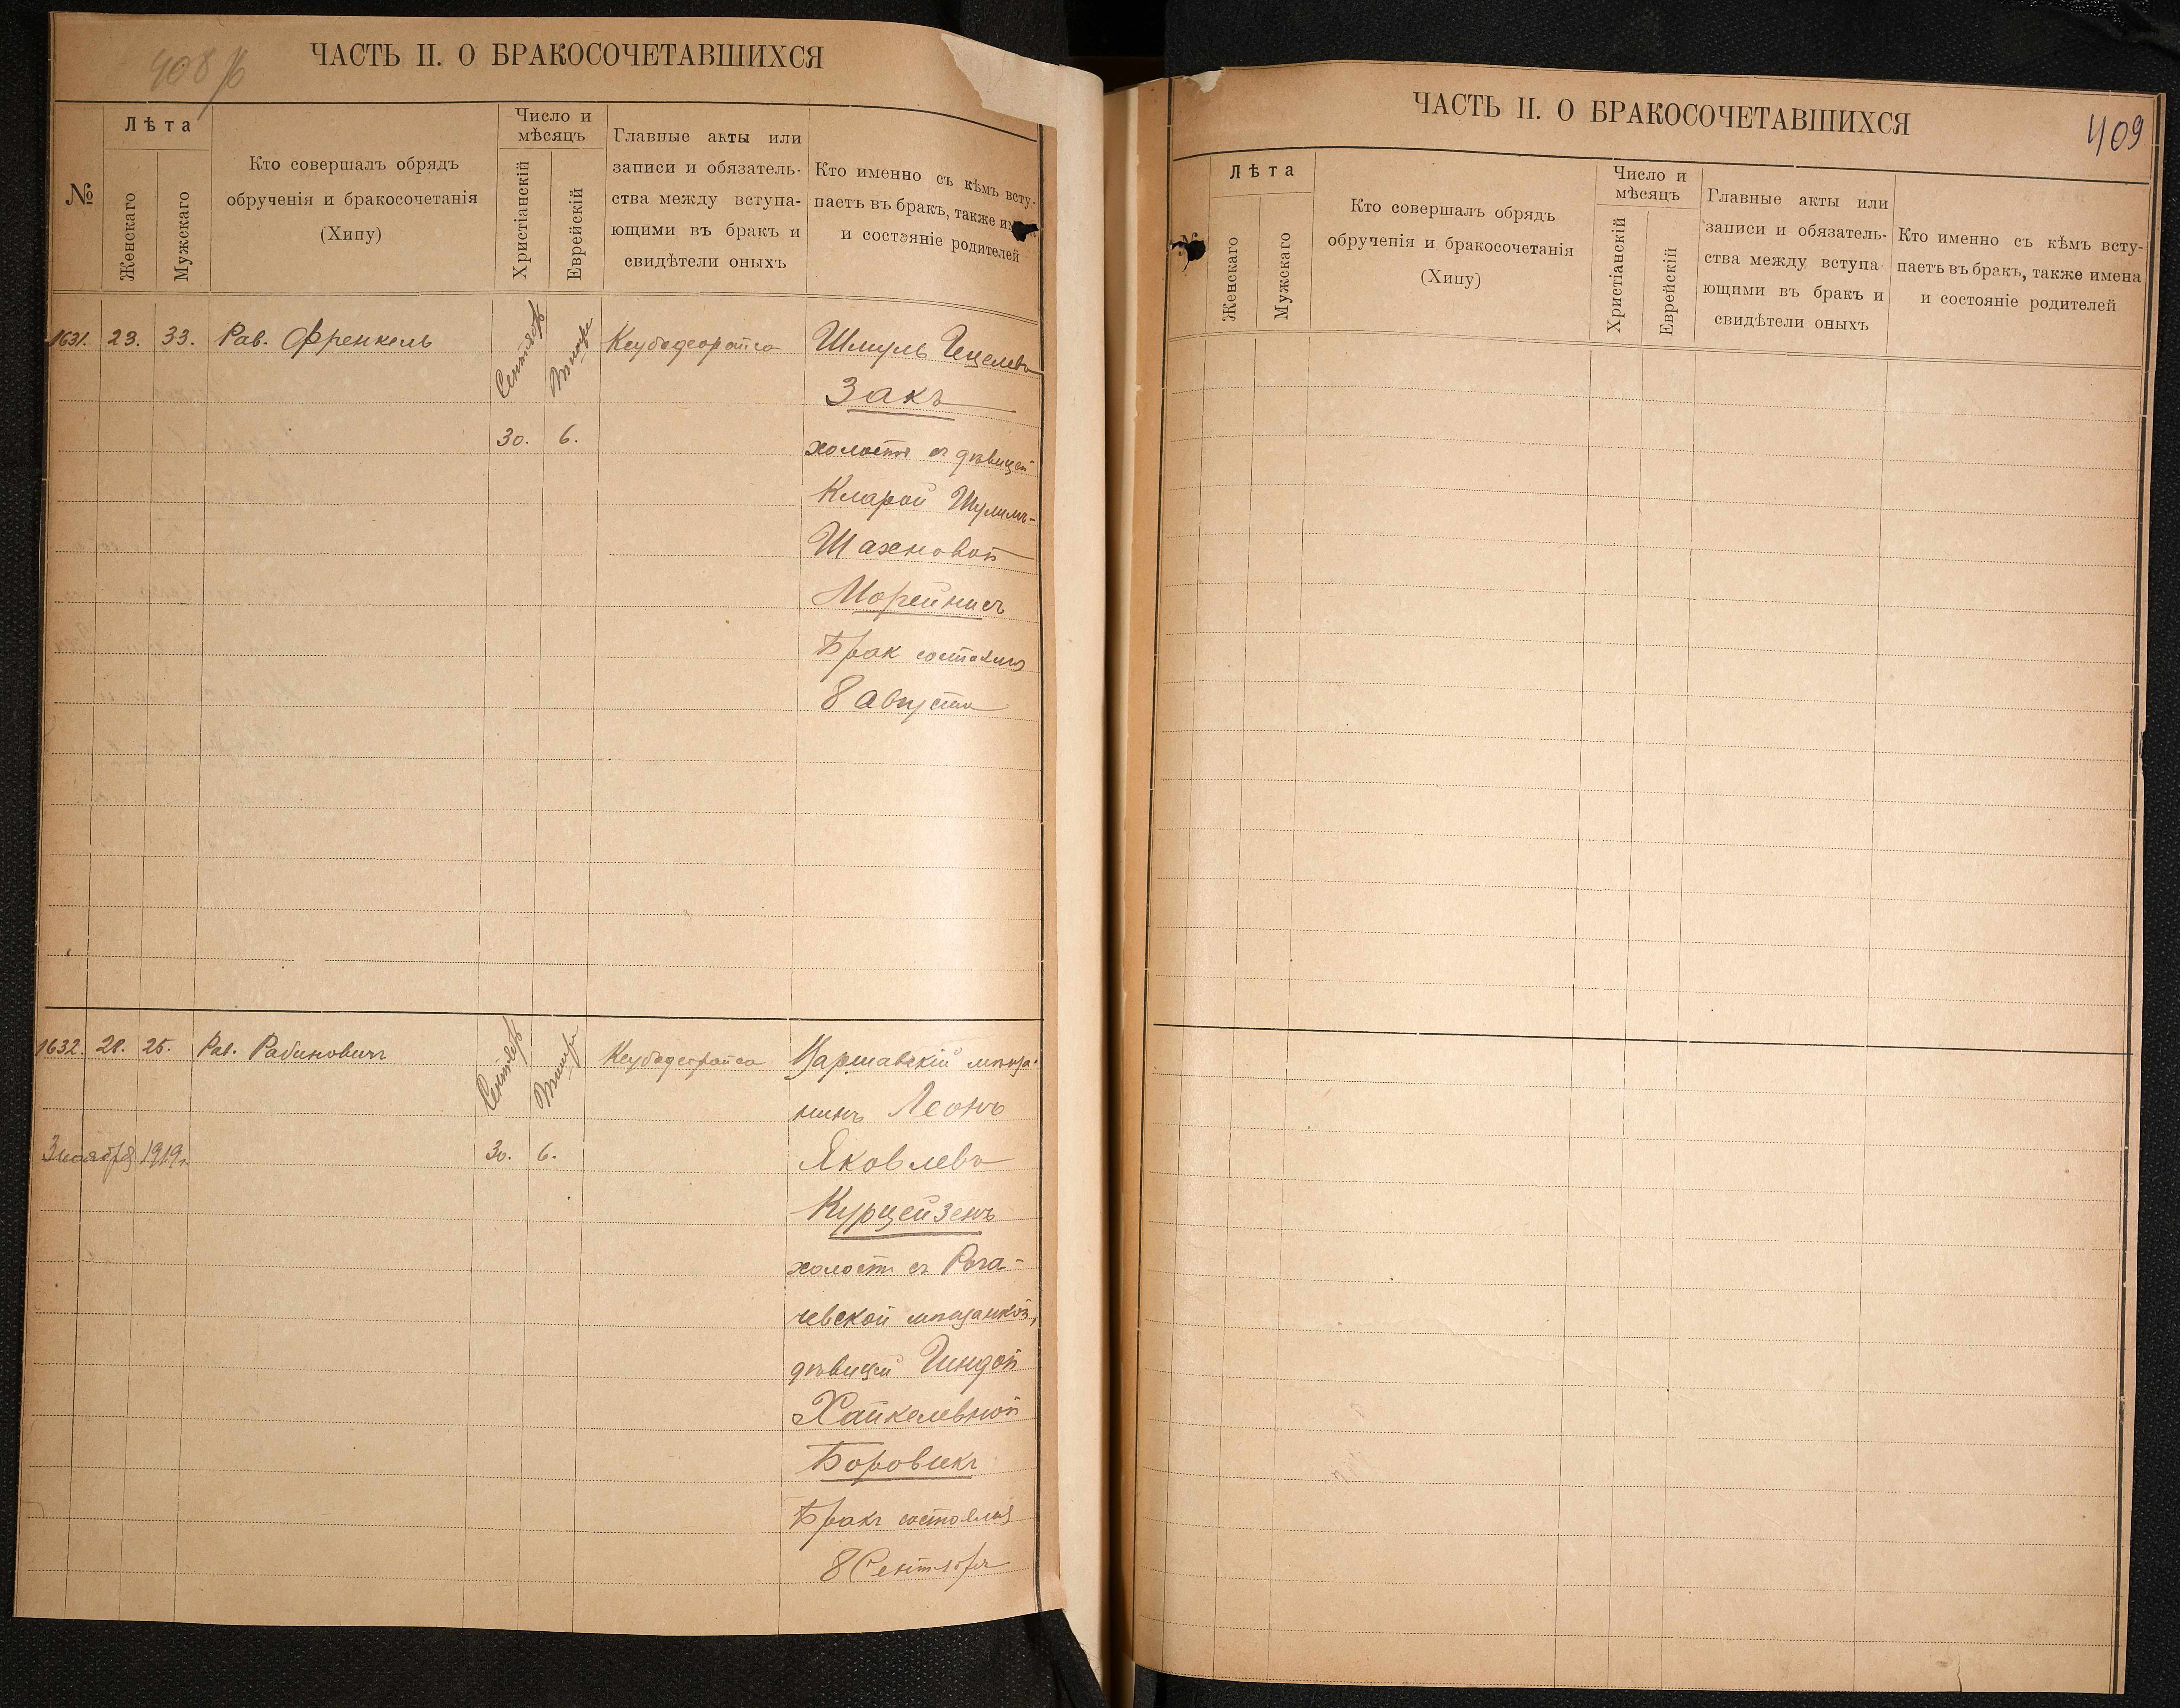 408 /б
ЧАСТЬ II. О БРАКОСОЧЕТАВШИХСЯ
№
Лѣта
Женскаго
Мужскаго
Кто совершалъ обрядъ
обрученія и бракосочетанія
(Хипу)
Число и
мѣсяцъ
Христіанскій
Еврейскій
Главные акты или
записи и обязатель-
ства между вступа-
ющими въ бракъ и
свидѣтели оныхъ
Кто именно съ кѣмъ всту-
паетъ въ бракъ, также
и состояніе родителей
1631. 23. 33. Рав. Френкель
Сентябрь
Тишри
30. 6.
Кеубодеорайса
Шмуль Гецелевъ
Закъ
холостъ съ дѣвицей
Кларой Шулимъ-
Шахновой
Морейнисъ
Брак состоялся
8 августа
1632. 21. 25. Рав. Рабиновичъ
3 ноября 1919 г.
Сентябрь
Тишри
30. 6.
Кеубодеорайса
Варшавскій мѣща-
нинъ Леонъ
Яковлевъ
Курцейзенъ
холостъ съ Рога-
чевской мѣщанкой,
дѣвицей Гиндой
Хайкелевной
Боровикъ
Бракъ состоялся
8 Сентября
ЧАСТЬ II. О БРАКОСОЧЕТАВШИХСЯ
409
Лѣта
Женскаго
Мужскаго
Кто совершалъ обрядъ
обрученія и бракосочетанія
(Хипу)
Число и
мѣсяцъ
Христіанскій
Еврейскій
Главные акты или
записи и обязатель-
ства между вступа-
ющими въ бракъ и
свидѣтели оныхъ
Кто именно съ кѣмъ всту-
паетъ въ бракъ, также имена
и состояніе родителей